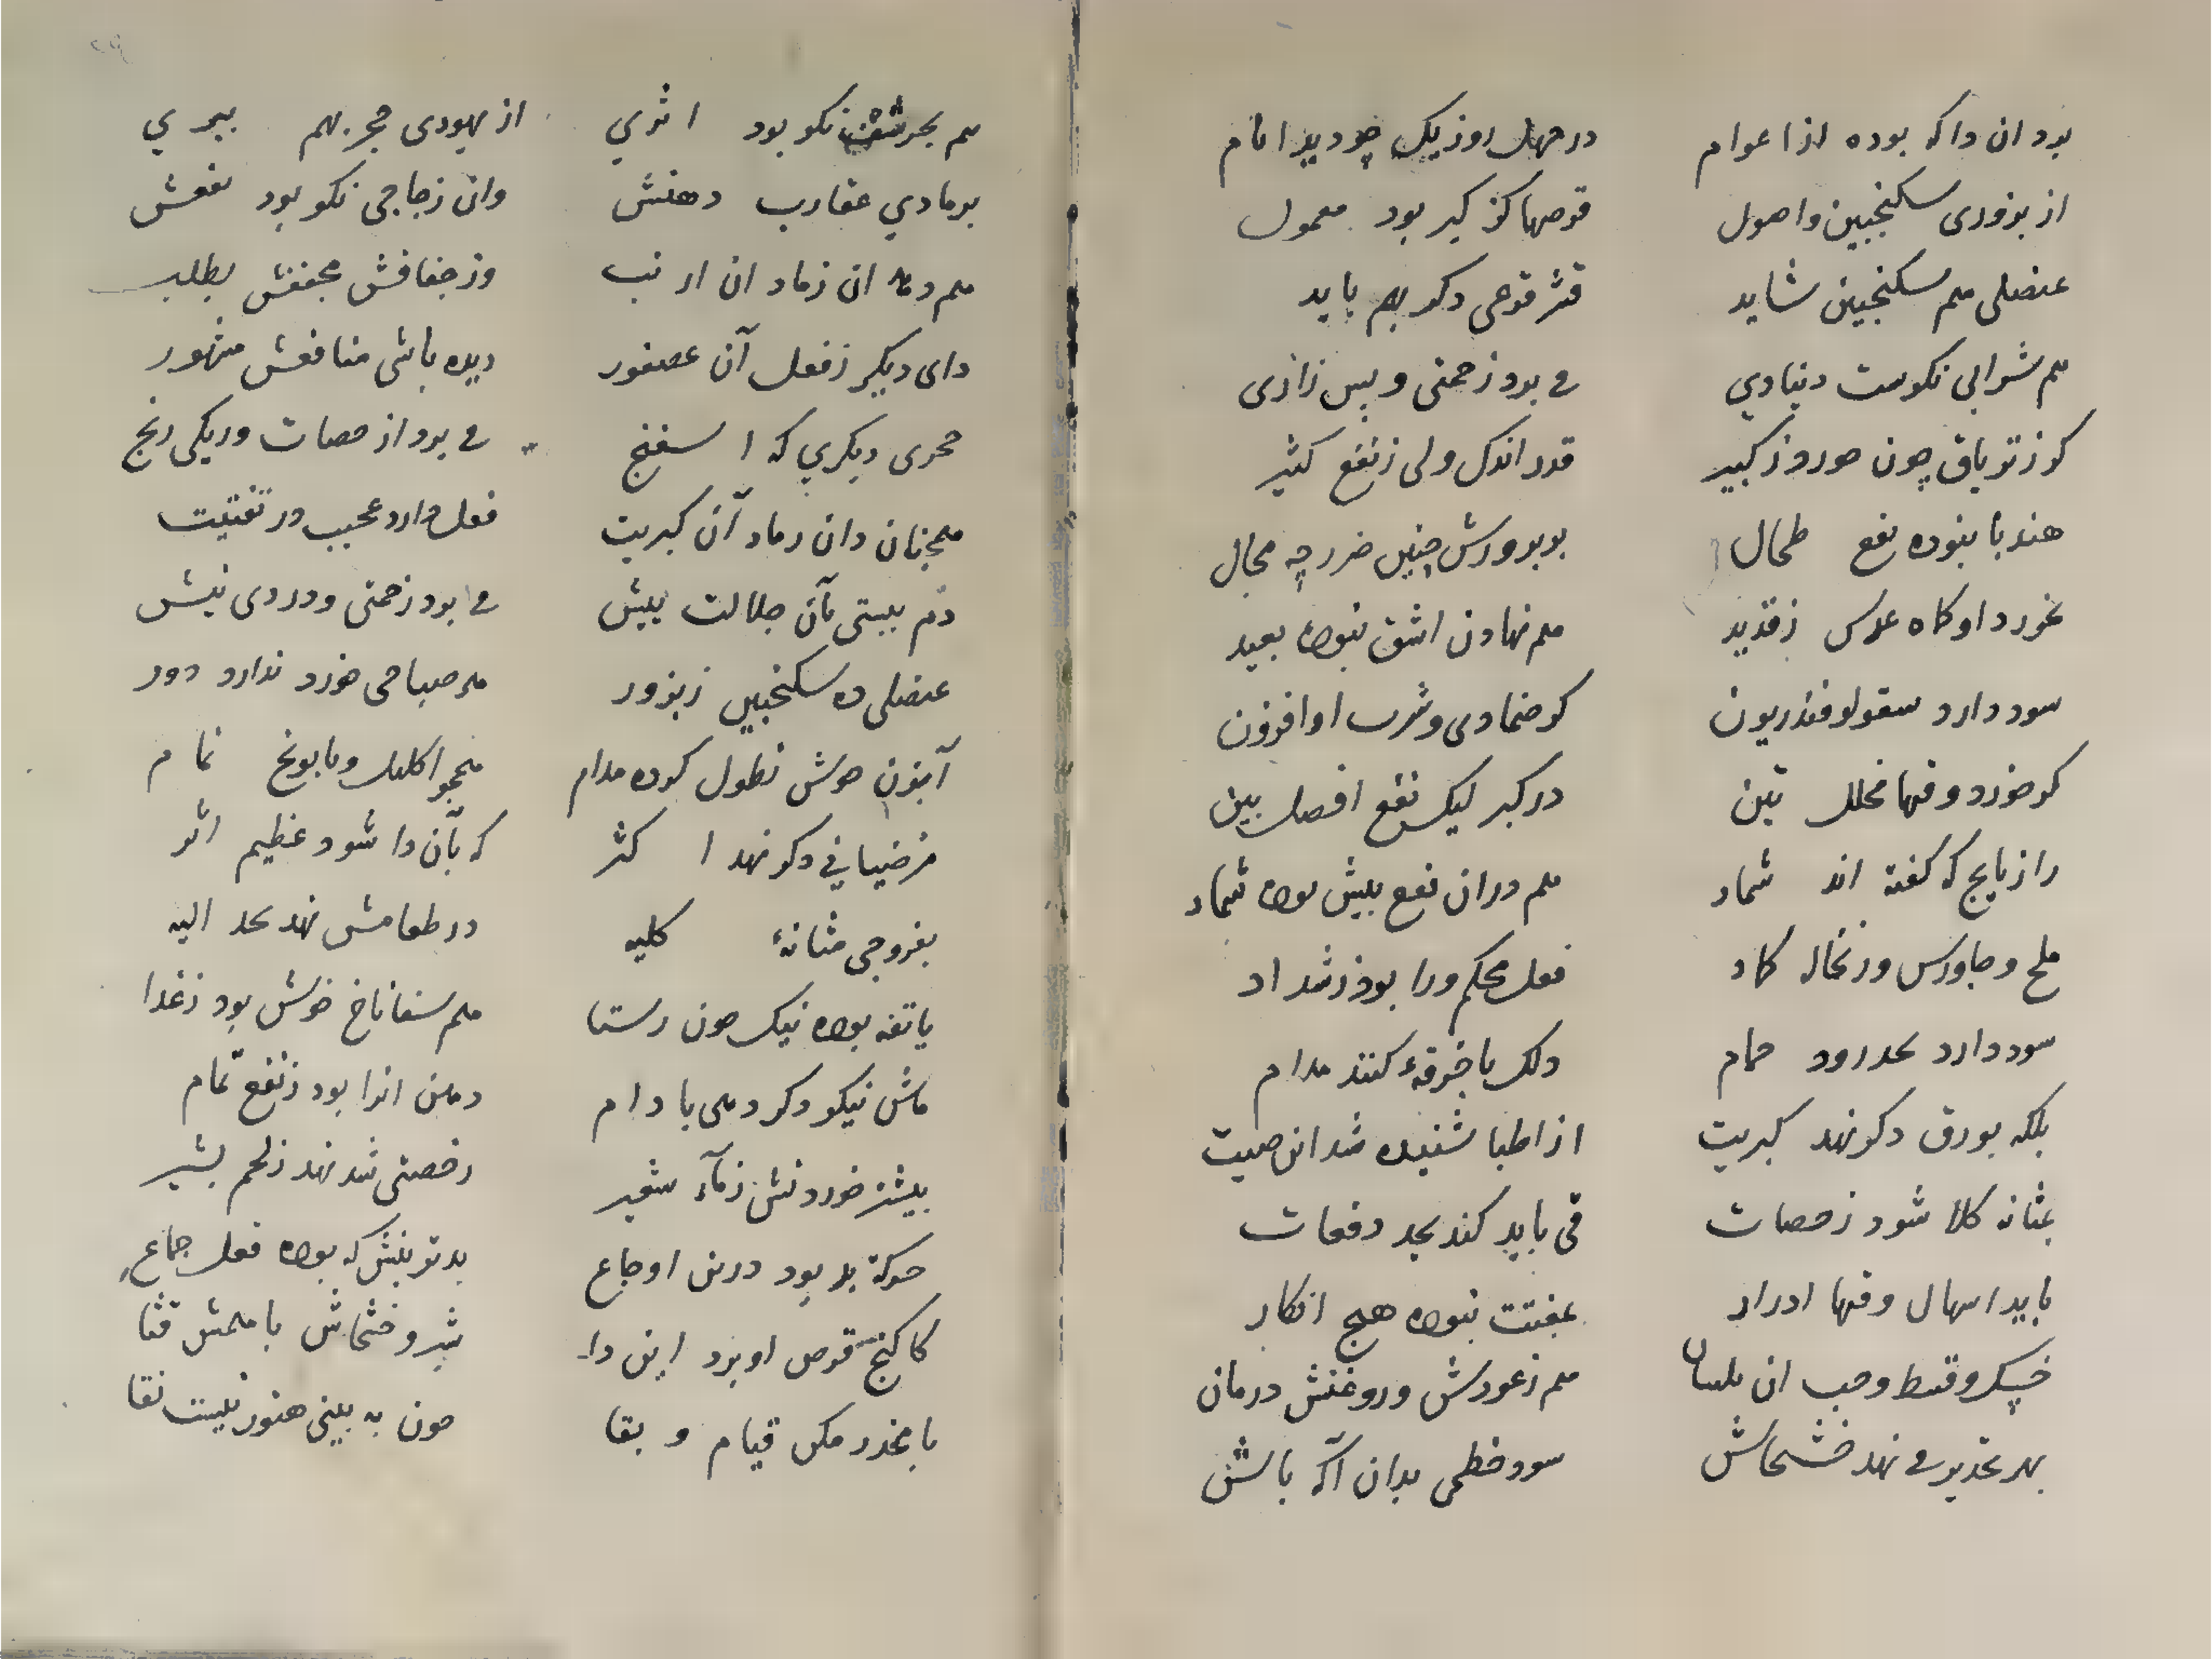 برد ان را که بوده از اعوام در چهل روز یک چو دید ایام
از بزوری سکنجبین و اصول قرصها کز کبر بود معمول
عنصلی هم سکنجبین شاید قشر قوعی دکر بهم باید
هم شرابی نکوست دیناری می برد زحمتی و بس زاری
کو ز تریاق چون خورد ز کبیر قدر اندک ولی ز نفع کثیر
هندبا بنوده نفع طحال بوبرورش چنین ضرر چه مجال
غورد او کاه عدس ز قدید هم نهادن اشق نبوده بعید
سود دارد سقولوفندریون کو ضمادی و شرب او افزون
کو خورد وقتها مخلل تین در کبر لیک نفع افضل بین
رازیانج که گفته اند شمار هم در ان نفع بیش بوده شمار
ملح و جاورس و ز نخاله کماد فعل محکم ورا بود ز شداد
سود دارد بحد رود حمام دلک با خرقهٔ کنند مدام
بلکه بورق دکر نهد کبریت از اطبا شنیده شد این صیت
بمثانه کلا شود ز حصات قی باید کند بحد دفعات
باید اسهال وقتها ادرار بمفتت نبوده هیچ انکار
خسک و قسط و حب ان بلسان هم ز عودش و روغنش درمان
بهر تخدیر می نهد خشخاش سود خطمی بدان آکه باش
هم بحر نکو بود اثری از یهودی حجر بهم ببری
برمادی عقارب دهنش وان زجاجی نکو بود نفعش
هم دم ان رماد ان ارنب وز جفافش مجففش بطلب
دای دیگر ز فعل آن عصفور دیده باشی منافعش مشهور
حجری دیکری که اسفنج می برد از حصات وریکی رنج
همچنان دان رماد آن کبریت فعل دارد عجیب در تفتیت
دم ببستی بآن جلالت بیش می برد زحمتی و دردی نیش
عنصلی ده سکنجبین ز بزور هر صباحی خورد ندارد دور
آبزن خوش نطول کرده مدام همچو اکلیل و بابونج تمام
مرضیافی دکر نهد اکثر که بآن را شود عظیم اثر
بفروجی مثانهٔ کلیه در طعامش نهد بحد الیه
یا تفه بوده نیک چون رستا هم سفاناخ خوش بود ز غذا
ماش نیکو دکر دهی بادام دهن انرا بود ز نفع تمام
بیشتر خوردنش ز مآء شعیر رخصتی شد نهد ز لحم بشیر
حرکة بد بود درین اوجاع بدتر بینش که بوده فعل جماع
کاکنج قرص او برد این دا شیر و خشخاش با همش قثا
با مخدر مکن قیام و بقا چون به بینی هنوز نیست نقا